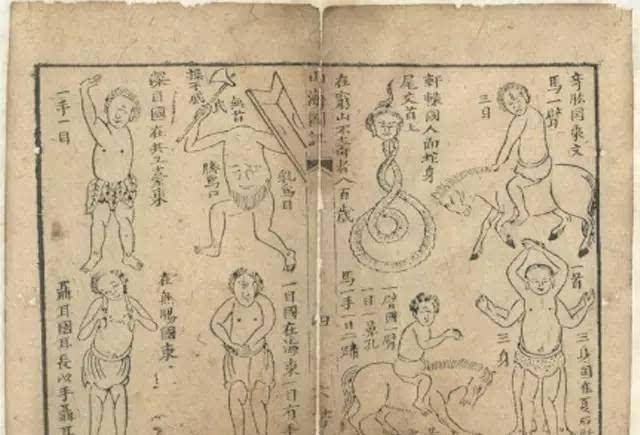 奇肱國東文
馬一臂
三目
軒轅國人面蛇身
尾交首上
在窮山不壽者八百歲
一首
三身
三身國在夏后
一臂國一臂
一目一鼻孔
馬一手一目二蹄
山海圖
四
乳為目
無首
臍為口
操干戚
深目國在共工臺東
一手一目
一目國在海東一目有手
在無腸國東
聶耳國耳長以手聶耳